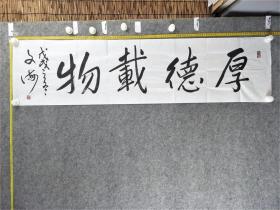 厚德載物
戊戌
文海